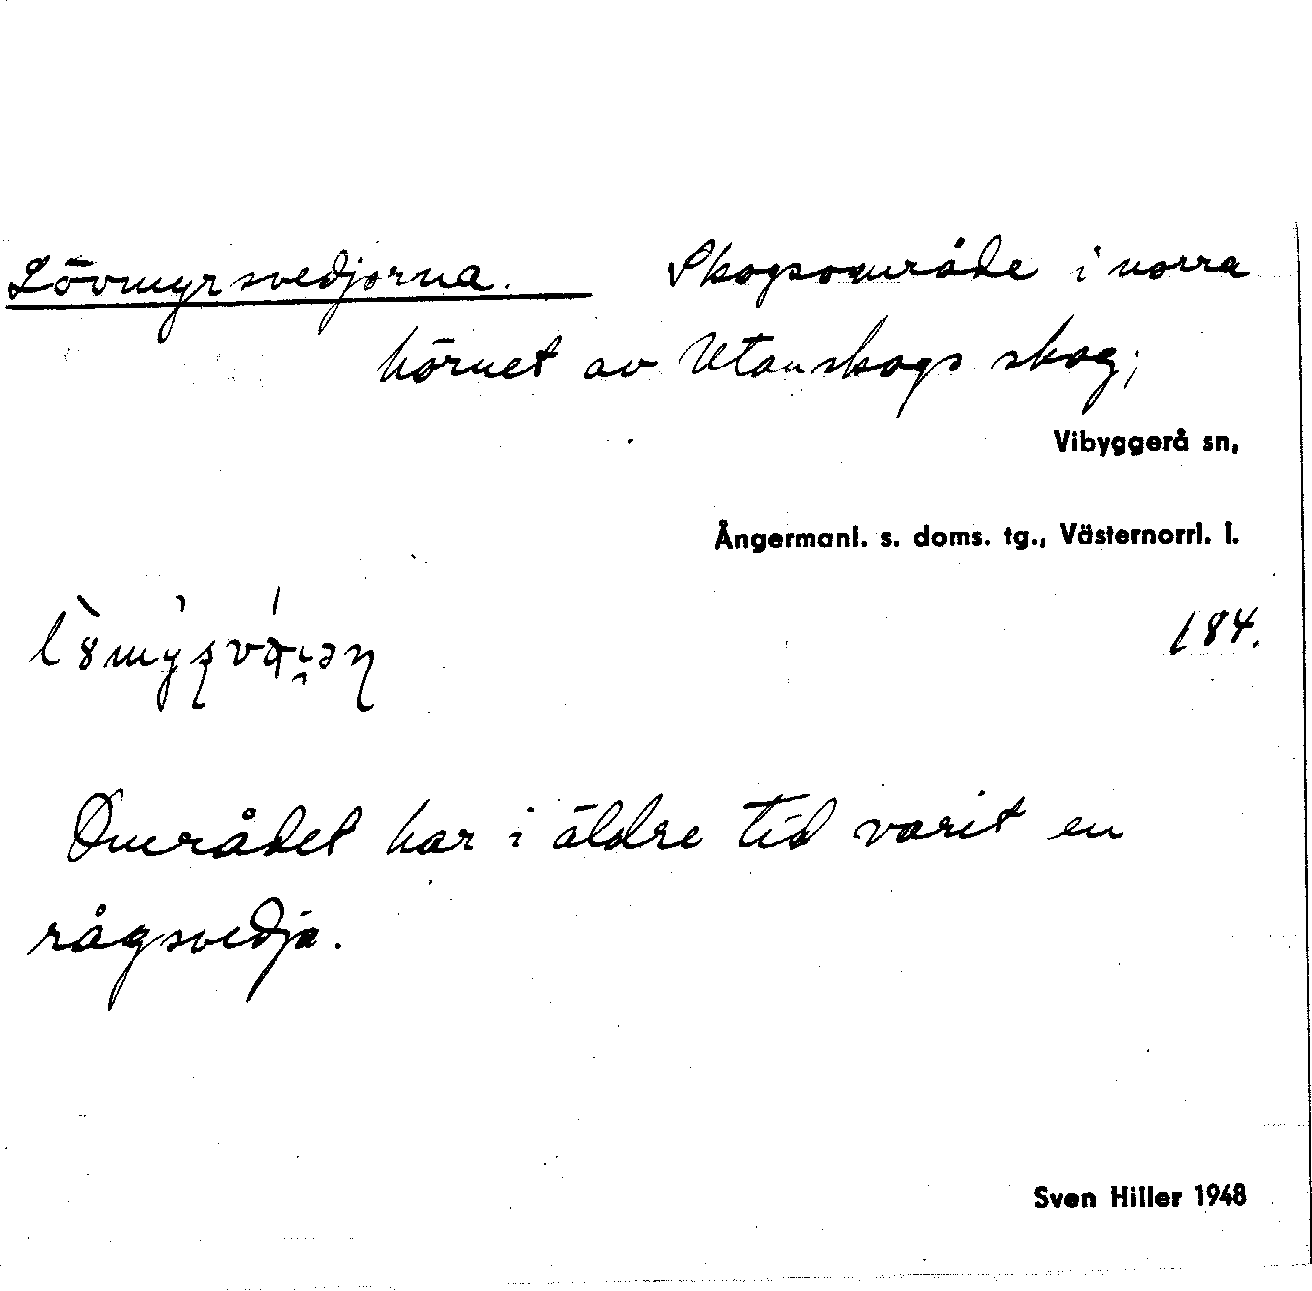 Lövmyrsvedjorna. Skogsområde i norra
hörnet av Utanskogs skog;
Vibyggerå sn,
Ångermanl. s. doms. tg., Västernorrl. l.
184.
Området har i äldre tid varit en
rågsvedja.
Sven Hiller 1948